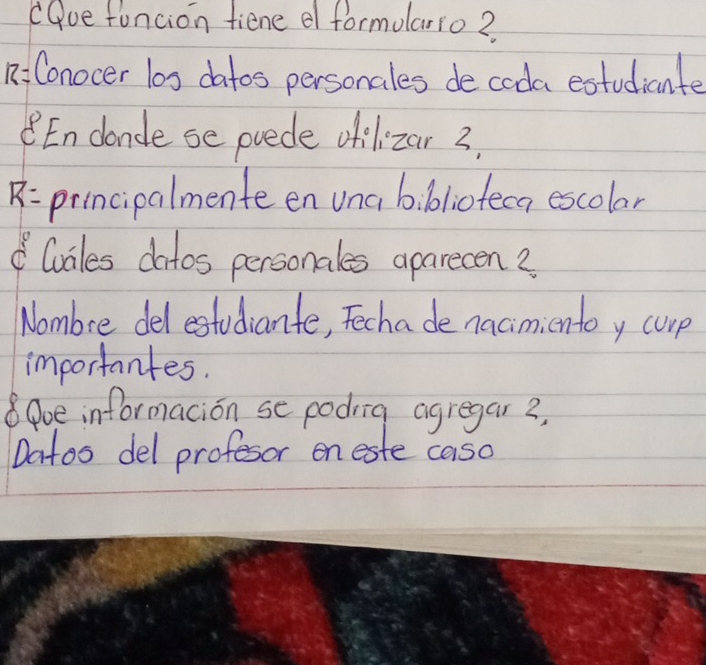 ¿Que función tiene el formulario?
R= Conocer los datos personales de cada estudiante
¿En donde se puede utilizar?
R= principalmente en una biblioteca escolar
¿Cuáles datos personales aparecen?
Nombre del estudiante, Fecha de nacimiento y curp
importantes.
¿Que información se podira agregar?
Datos del profesor en este caso